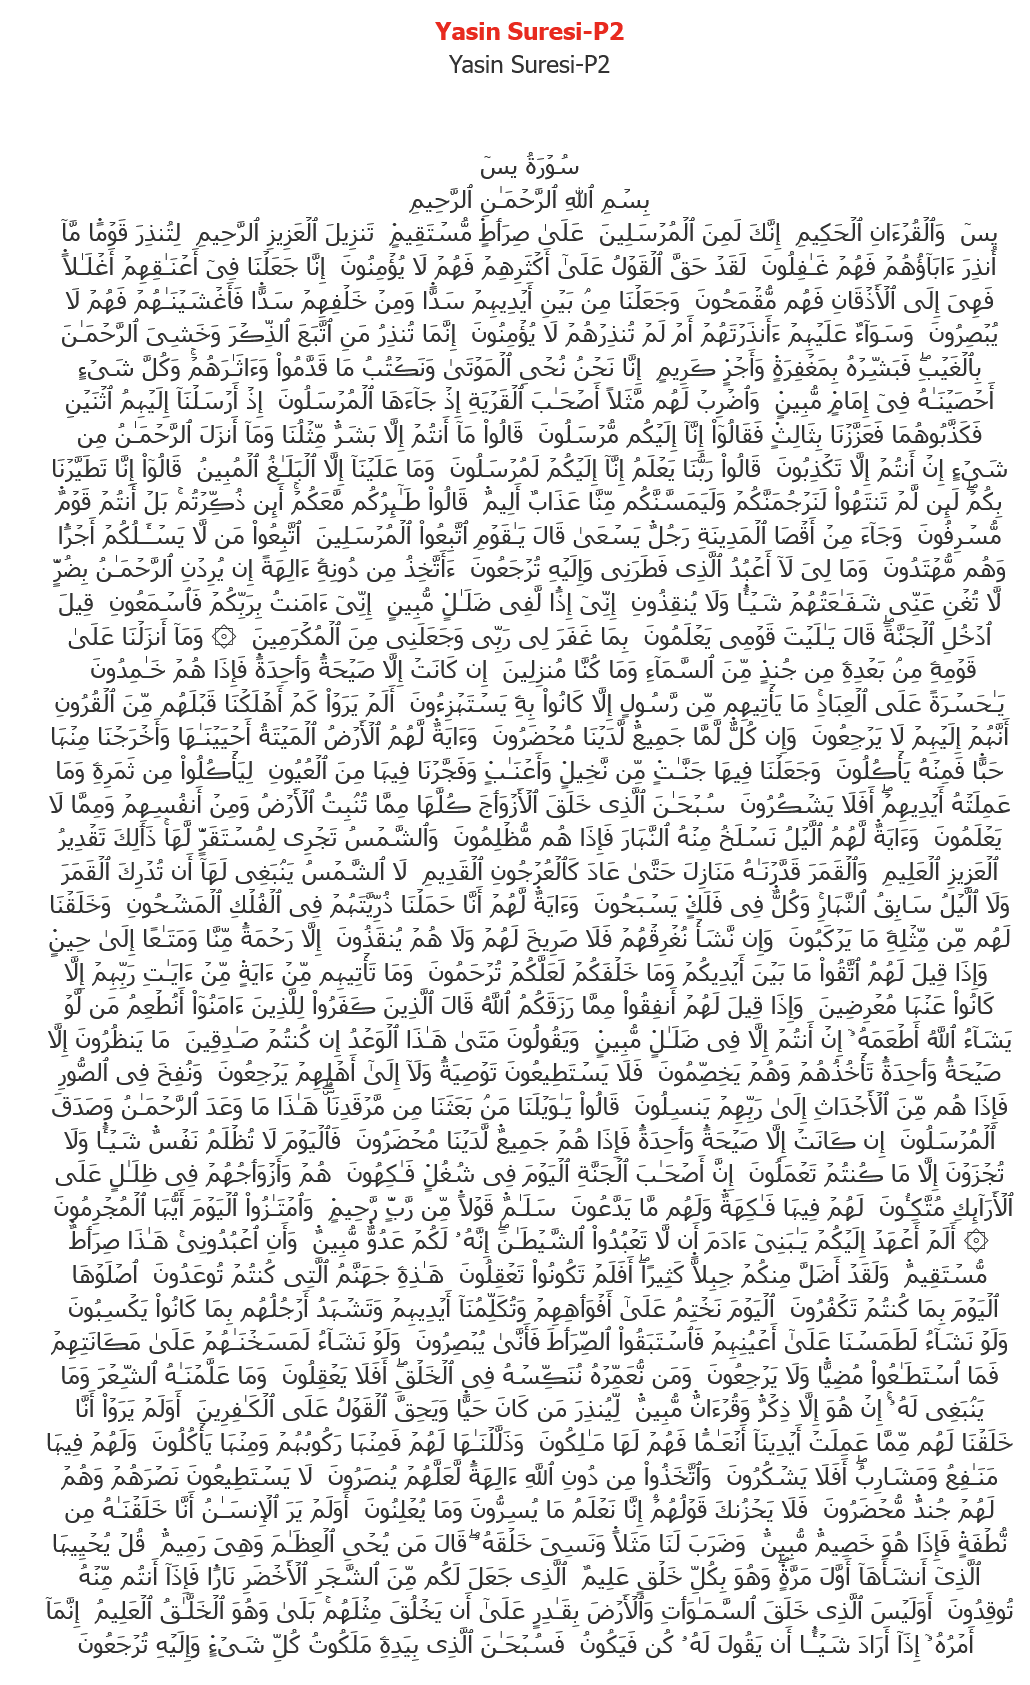 Yasin Suresi-P2
Yasin Suresi-P2
سُوۡرَةُ یسٓ
بِسۡمِ ٱللهِ ٱلرَّحۡمَـٰنِ ٱلرَّحِیمِ
یسٓ  وَٱلۡقُرۡءَانِ ٱلۡحَكِیمِ  إِنَّكَ لَمِنَ ٱلۡمُرۡسَلِینَ  عَلَىٰ صِرَ ٰ⁠طࣲ مُّسۡتَقِیمࣲ  تَنزِیلَ ٱلۡعَزِیزِ ٱلرَّحِیمِ  لِتُنذِرَ قَوۡمࣰا مَّاۤ
أُنذِرَ ءَابَاۤؤُهُمۡ فَهُمۡ غَـٰفِلُونَ  لَقَدۡ حَقَّ ٱلۡقَوۡلُ عَلَىٰۤ أَكۡثَرِهِمۡ فَهُمۡ لَا یُؤۡمِنُونَ  إِنَّا جَعَلۡنَا فِیۤ أَعۡنَـٰقِهِمۡ أَغۡلَـٰلࣰا
فَهِیَ إِلَى ٱلۡأَذۡقَانِ فَهُم مُّقۡمَحُونَ  وَجَعَلۡنَا مِنۢ بَیۡنِ أَیۡدِیهِمۡ سَدࣰّا وَمِنۡ خَلۡفِهِمۡ سَدࣰّا فَأَغۡشَیۡنَـٰهُمۡ فَهُمۡ لَا
یُبۡصِرُونَ  وَسَوَاۤءٌ عَلَیۡهِمۡ ءَأَنذَرۡتَهُمۡ أَمۡ لَمۡ تُنذِرۡهُمۡ لَا یُؤۡمِنُونَ  إِنَّمَا تُنذِرُ مَنِ ٱتَّبَعَ ٱلذِّكۡرَ وَخَشِیَ ٱلرَّحۡمَـٰنَ
بِٱلۡغَیۡبِۖ فَبَشِّرۡهُ بِمَغۡفِرَةࣲ وَأَجۡرࣲ كَرِیمٍ  إِنَّا نَحۡنُ نُحۡیِ ٱلۡمَوۡتَىٰ وَنَكۡتُبُ مَا قَدَّمُوا۟ وَءَاثَـٰرَهُمۡۚ وَكُلَّ شَیۡءٍ
أَحۡصَیۡنَـٰهُ فِیۤ إِمَامࣲ مُّبِینࣲ  وَٱضۡرِبۡ لَهُم مَّثَلًا أَصۡحَـٰبَ ٱلۡقَرۡیَةِ إِذۡ جَاۤءَهَا ٱلۡمُرۡسَلُونَ  إِذۡ أَرۡسَلۡنَاۤ إِلَیۡهِمُ ٱثۡنَیۡنِ
فَكَذَّبُوهُمَا فَعَزَّزۡنَا بِثَالِثࣲ فَقَالُوۤا۟ إِنَّاۤ إِلَیۡكُم مُّرۡسَلُونَ  قَالُوا۟ مَاۤ أَنتُمۡ إِلَّا بَشَرࣱ مِّثۡلُنَا وَمَاۤ أَنزَلَ ٱلرَّحۡمَـٰنُ مِن
شَیۡءٍ إِنۡ أَنتُمۡ إِلَّا تَكۡذِبُونَ  قَالُوا۟ رَبُّنَا یَعۡلَمُ إِنَّاۤ إِلَیۡكُمۡ لَمُرۡسَلُونَ  وَمَا عَلَیۡنَاۤ إِلَّا ٱلۡبَلَـٰغُ ٱلۡمُبِینُ  قَالُوۤا۟ إِنَّا تَطَیَّرۡنَا
بِكُمۡۖ لَىِٕن لَّمۡ تَنتَهُوا۟ لَنَرۡجُمَنَّكُمۡ وَلَیَمَسَّنَّكُم مِّنَّا عَذَابٌ أَلِیمࣱ  قَالُوا۟ طَـٰۤىِٕرُكُم مَّعَكُمۡ أَىِٕن ذُكِّرۡتُمۚ بَلۡ أَنتُمۡ قَوۡمࣱ
مُّسۡرِفُونَ  وَجَاۤءَ مِنۡ أَقۡصَا ٱلۡمَدِینَةِ رَجُلࣱ یَسۡعَىٰ قَالَ یَـٰقَوۡمِ ٱتَّبِعُوا۟ ٱلۡمُرۡسَلِینَ  ٱتَّبِعُوا۟ مَن لَّا یَسۡـَٔلُكُمۡ أَجۡرࣰا
وَهُم مُّهۡتَدُونَ  وَمَا لِیَ لَاۤ أَعۡبُدُ ٱلَّذِی فَطَرَنِی وَإِلَیۡهِ تُرۡجَعُونَ  ءَأَتَّخِذُ مِن دُونِهِۦۤ ءَالِهَةً إِن یُرِدۡنِ ٱلرَّحۡمَـٰنُ بِضُرࣲّ
لَّا تُغۡنِ عَنِّی شَفَـٰعَتُهُمۡ شَیۡـࣰٔا وَلَا یُنقِذُونِ  إِنِّیۤ إِذࣰا لَّفِی ضَلَـٰلࣲ مُّبِینٍ  إِنِّیۤ ءَامَنتُ بِرَبِّكُمۡ فَٱسۡمَعُونِ  قِیلَ
ٱدۡخُلِ ٱلۡجَنَّةَۖ قَالَ یَـٰلَیۡتَ قَوۡمِی یَعۡلَمُونَ  بِمَا غَفَرَ لِی رَبِّی وَجَعَلَنِی مِنَ ٱلۡمُكۡرَمِینَ  ۞ وَمَاۤ أَنزَلۡنَا عَلَىٰ
قَوۡمِهِۦ مِنۢ بَعۡدِهِۦ مِن جُندࣲ مِّنَ ٱلسَّمَاۤءِ وَمَا كُنَّا مُنزِلِینَ  إِن كَانَتۡ إِلَّا صَیۡحَةࣰ وَ ٰ⁠حِدَةࣰ فَإِذَا هُمۡ خَـٰمِدُونَ
یَـٰحَسۡرَةً عَلَى ٱلۡعِبَادِۚ مَا یَأۡتِیهِم مِّن رَّسُولٍ إِلَّا كَانُوا۟ بِهِۦ یَسۡتَهۡزِءُونَ  أَلَمۡ یَرَوۡا۟ كَمۡ أَهۡلَكۡنَا قَبۡلَهُم مِّنَ ٱلۡقُرُونِ
أَنَّهُمۡ إِلَیۡهِمۡ لَا یَرۡجِعُونَ  وَإِن كُلࣱّ لَّمَّا جَمِیعࣱ لَّدَیۡنَا مُحۡضَرُونَ  وَءَایَةࣱ لَّهُمُ ٱلۡأَرۡضُ ٱلۡمَیۡتَةُ أَحۡیَیۡنَـٰهَا وَأَخۡرَجۡنَا مِنۡهَا
حَبࣰّا فَمِنۡهُ یَأۡكُلُونَ  وَجَعَلۡنَا فِیهَا جَنَّـٰتࣲ مِّن نَّخِیلࣲ وَأَعۡنَـٰبࣲ وَفَجَّرۡنَا فِیهَا مِنَ ٱلۡعُیُونِ  لِیَأۡكُلُوا۟ مِن ثَمَرِهِۦ وَمَا
عَمِلَتۡهُ أَیۡدِیهِمۡۚ أَفَلَا یَشۡكُرُونَ  سُبۡحَـٰنَ ٱلَّذِی خَلَقَ ٱلۡأَزۡوَ ٰ⁠جَ كُلَّهَا مِمَّا تُنۢبِتُ ٱلۡأَرۡضُ وَمِنۡ أَنفُسِهِمۡ وَمِمَّا لَا
یَعۡلَمُونَ  وَءَایَةࣱ لَّهُمُ ٱلَّیۡلُ نَسۡلَخُ مِنۡهُ ٱلنَّهَارَ فَإِذَا هُم مُّظۡلِمُونَ  وَٱلشَّمۡسُ تَجۡرِی لِمُسۡتَقَرࣲّ لَّهَاۚ ذَ ٰ⁠لِكَ تَقۡدِیرُ
ٱلۡعَزِیزِ ٱلۡعَلِیمِ  وَٱلۡقَمَرَ قَدَّرۡنَـٰهُ مَنَازِلَ حَتَّىٰ عَادَ كَٱلۡعُرۡجُونِ ٱلۡقَدِیمِ  لَا ٱلشَّمۡسُ یَنۢبَغِی لَهَاۤ أَن تُدۡرِكَ ٱلۡقَمَرَ
وَلَا ٱلَّیۡلُ سَابِقُ ٱلنَّهَارِۚ وَكُلࣱّ فِی فَلَكࣲ یَسۡبَحُونَ  وَءَایَةࣱ لَّهُمۡ أَنَّا حَمَلۡنَا ذُرِّیَّتَهُمۡ فِی ٱلۡفُلۡكِ ٱلۡمَشۡحُونِ  وَخَلَقۡنَا
لَهُم مِّن مِّثۡلِهِۦ مَا یَرۡكَبُونَ  وَإِن نَّشَأۡ نُغۡرِقۡهُمۡ فَلَا صَرِیخَ لَهُمۡ وَلَا هُمۡ یُنقَذُونَ  إِلَّا رَحۡمَةࣰ مِّنَّا وَمَتَـٰعًا إِلَىٰ حِینࣲ
وَإِذَا قِیلَ لَهُمُ ٱتَّقُوا۟ مَا بَیۡنَ أَیۡدِیكُمۡ وَمَا خَلۡفَكُمۡ لَعَلَّكُمۡ تُرۡحَمُونَ  وَمَا تَأۡتِیهِم مِّنۡ ءَایَةࣲ مِّنۡ ءَایَـٰتِ رَبِّهِمۡ إِلَّا
كَانُوا۟ عَنۡهَا مُعۡرِضِینَ  وَإِذَا قِیلَ لَهُمۡ أَنفِقُوا۟ مِمَّا رَزَقَكُمُ ٱللَّهُ قَالَ ٱلَّذِینَ كَفَرُوا۟ لِلَّذِینَ ءَامَنُوۤا۟ أَنُطۡعِمُ مَن لَّوۡ
یَشَاۤءُ ٱللَّهُ أَطۡعَمَهُۥۤ إِنۡ أَنتُمۡ إِلَّا فِی ضَلَـٰلࣲ مُّبِینࣲ  وَیَقُولُونَ مَتَىٰ هَـٰذَا ٱلۡوَعۡدُ إِن كُنتُمۡ صَـٰدِقِینَ  مَا یَنظُرُونَ إِلَّا
صَیۡحَةࣰ وَ ٰ⁠حِدَةࣰ تَأۡخُذُهُمۡ وَهُمۡ یَخِصِّمُونَ  فَلَا یَسۡتَطِیعُونَ تَوۡصِیَةࣰ وَلَاۤ إِلَىٰۤ أَهۡلِهِمۡ یَرۡجِعُونَ  وَنُفِخَ فِی ٱلصُّورِ
فَإِذَا هُم مِّنَ ٱلۡأَجۡدَاثِ إِلَىٰ رَبِّهِمۡ یَنسِلُونَ  قَالُوا۟ یَـٰوَیۡلَنَا مَنۢ بَعَثَنَا مِن مَّرۡقَدِنَاۜۗ هَـٰذَا مَا وَعَدَ ٱلرَّحۡمَـٰنُ وَصَدَقَ
ٱلۡمُرۡسَلُونَ  إِن كَانَتۡ إِلَّا صَیۡحَةࣰ وَ ٰ⁠حِدَةࣰ فَإِذَا هُمۡ جَمِیعࣱ لَّدَیۡنَا مُحۡضَرُونَ  فَٱلۡیَوۡمَ لَا تُظۡلَمُ نَفۡسࣱ شَیۡـࣰٔا وَلَا
تُجۡزَوۡنَ إِلَّا مَا كُنتُمۡ تَعۡمَلُونَ  إِنَّ أَصۡحَـٰبَ ٱلۡجَنَّةِ ٱلۡیَوۡمَ فِی شُغُلࣲ فَـٰكِهُونَ  هُمۡ وَأَزۡوَ ٰ⁠جُهُمۡ فِی ظِلَـٰلٍ عَلَى
ٱلۡأَرَاۤىِٕكِ مُتَّكِـُٔونَ  لَهُمۡ فِیهَا فَـٰكِهَةࣱ وَلَهُم مَّا یَدَّعُونَ  سَلَـٰمࣱ قَوۡلࣰا مِّن رَّبࣲّ رَّحِیمࣲ  وَٱمۡتَـٰزُوا۟ ٱلۡیَوۡمَ أَیُّهَا ٱلۡمُجۡرِمُونَ
۞ أَلَمۡ أَعۡهَدۡ إِلَیۡكُمۡ یَـٰبَنِیۤ ءَادَمَ أَن لَّا تَعۡبُدُوا۟ ٱلشَّیۡطَـٰنَۖ إِنَّهُۥ لَكُمۡ عَدُوࣱّ مُّبِینࣱ  وَأَنِ ٱعۡبُدُونِیۚ هَـٰذَا صِرَ ٰ⁠طࣱ
مُّسۡتَقِیمࣱ  وَلَقَدۡ أَضَلَّ مِنكُمۡ جِبِلࣰّا كَثِیرًاۖ أَفَلَمۡ تَكُونُوا۟ تَعۡقِلُونَ  هَـٰذِهِۦ جَهَنَّمُ ٱلَّتِی كُنتُمۡ تُوعَدُونَ  ٱصۡلَوۡهَا
ٱلۡیَوۡمَ بِمَا كُنتُمۡ تَكۡفُرُونَ  ٱلۡیَوۡمَ نَخۡتِمُ عَلَىٰۤ أَفۡوَ ٰ⁠هِهِمۡ وَتُكَلِّمُنَاۤ أَیۡدِیهِمۡ وَتَشۡهَدُ أَرۡجُلُهُم بِمَا كَانُوا۟ یَكۡسِبُونَ
وَلَوۡ نَشَاۤءُ لَطَمَسۡنَا عَلَىٰۤ أَعۡیُنِهِمۡ فَٱسۡتَبَقُوا۟ ٱلصِّرَ ٰ⁠طَ فَأَنَّىٰ یُبۡصِرُونَ  وَلَوۡ نَشَاۤءُ لَمَسَخۡنَـٰهُمۡ عَلَىٰ مَكَانَتِهِمۡ
فَمَا ٱسۡتَطَـٰعُوا۟ مُضِیࣰّا وَلَا یَرۡجِعُونَ  وَمَن نُّعَمِّرۡهُ نُنَكِّسۡهُ فِی ٱلۡخَلۡقِۚ أَفَلَا یَعۡقِلُونَ  وَمَا عَلَّمۡنَـٰهُ ٱلشِّعۡرَ وَمَا
یَنۢبَغِی لَهُۥۤۚ إِنۡ هُوَ إِلَّا ذِكۡرࣱ وَقُرۡءَانࣱ مُّبِینࣱ  لِّیُنذِرَ مَن كَانَ حَیࣰّا وَیَحِقَّ ٱلۡقَوۡلُ عَلَى ٱلۡكَـٰفِرِینَ  أَوَلَمۡ یَرَوۡا۟ أَنَّا
خَلَقۡنَا لَهُم مِّمَّا عَمِلَتۡ أَیۡدِینَاۤ أَنۡعَـٰمࣰا فَهُمۡ لَهَا مَـٰلِكُونَ  وَذَلَّلۡنَـٰهَا لَهُمۡ فَمِنۡهَا رَكُوبُهُمۡ وَمِنۡهَا یَأۡكُلُونَ  وَلَهُمۡ فِیهَا
مَنَـٰفِعُ وَمَشَارِبُۚ أَفَلَا یَشۡكُرُونَ  وَٱتَّخَذُوا۟ مِن دُونِ ٱللَّهِ ءَالِهَةࣰ لَّعَلَّهُمۡ یُنصَرُونَ  لَا یَسۡتَطِیعُونَ نَصۡرَهُمۡ وَهُمۡ
لَهُمۡ جُندࣱ مُّحۡضَرُونَ  فَلَا یَحۡزُنكَ قَوۡلُهُمۡۘ إِنَّا نَعۡلَمُ مَا یُسِرُّونَ وَمَا یُعۡلِنُونَ  أَوَلَمۡ یَرَ ٱلۡإِنسَـٰنُ أَنَّا خَلَقۡنَـٰهُ مِن
نُّطۡفَةࣲ فَإِذَا هُوَ خَصِیمࣱ مُّبِینࣱ  وَضَرَبَ لَنَا مَثَلࣰا وَنَسِیَ خَلۡقَهُۥۖ قَالَ مَن یُحۡیِ ٱلۡعِظَـٰمَ وَهِیَ رَمِیمࣱ  قُلۡ یُحۡیِیهَا
ٱلَّذِیۤ أَنشَأَهَاۤ أَوَّلَ مَرَّةࣲۖ وَهُوَ بِكُلِّ خَلۡقٍ عَلِیمٌ  ٱلَّذِی جَعَلَ لَكُم مِّنَ ٱلشَّجَرِ ٱلۡأَخۡضَرِ نَارࣰا فَإِذَاۤ أَنتُم مِّنۡهُ
تُوقِدُونَ  أَوَلَیۡسَ ٱلَّذِی خَلَقَ ٱلسَّمَـٰوَ ٰ⁠تِ وَٱلۡأَرۡضَ بِقَـٰدِرٍ عَلَىٰۤ أَن یَخۡلُقَ مِثۡلَهُمۚ بَلَىٰ وَهُوَ ٱلۡخَلَّـٰقُ ٱلۡعَلِیمُ  إِنَّمَاۤ
أَمۡرُهُۥۤ إِذَاۤ أَرَادَ شَیۡـًٔا أَن یَقُولَ لَهُۥ كُن فَیَكُونُ  فَسُبۡحَـٰنَ ٱلَّذِی بِیَدِهِۦ مَلَكُوتُ كُلِّ شَیۡءࣲ وَإِلَیۡهِ تُرۡجَعُونَ